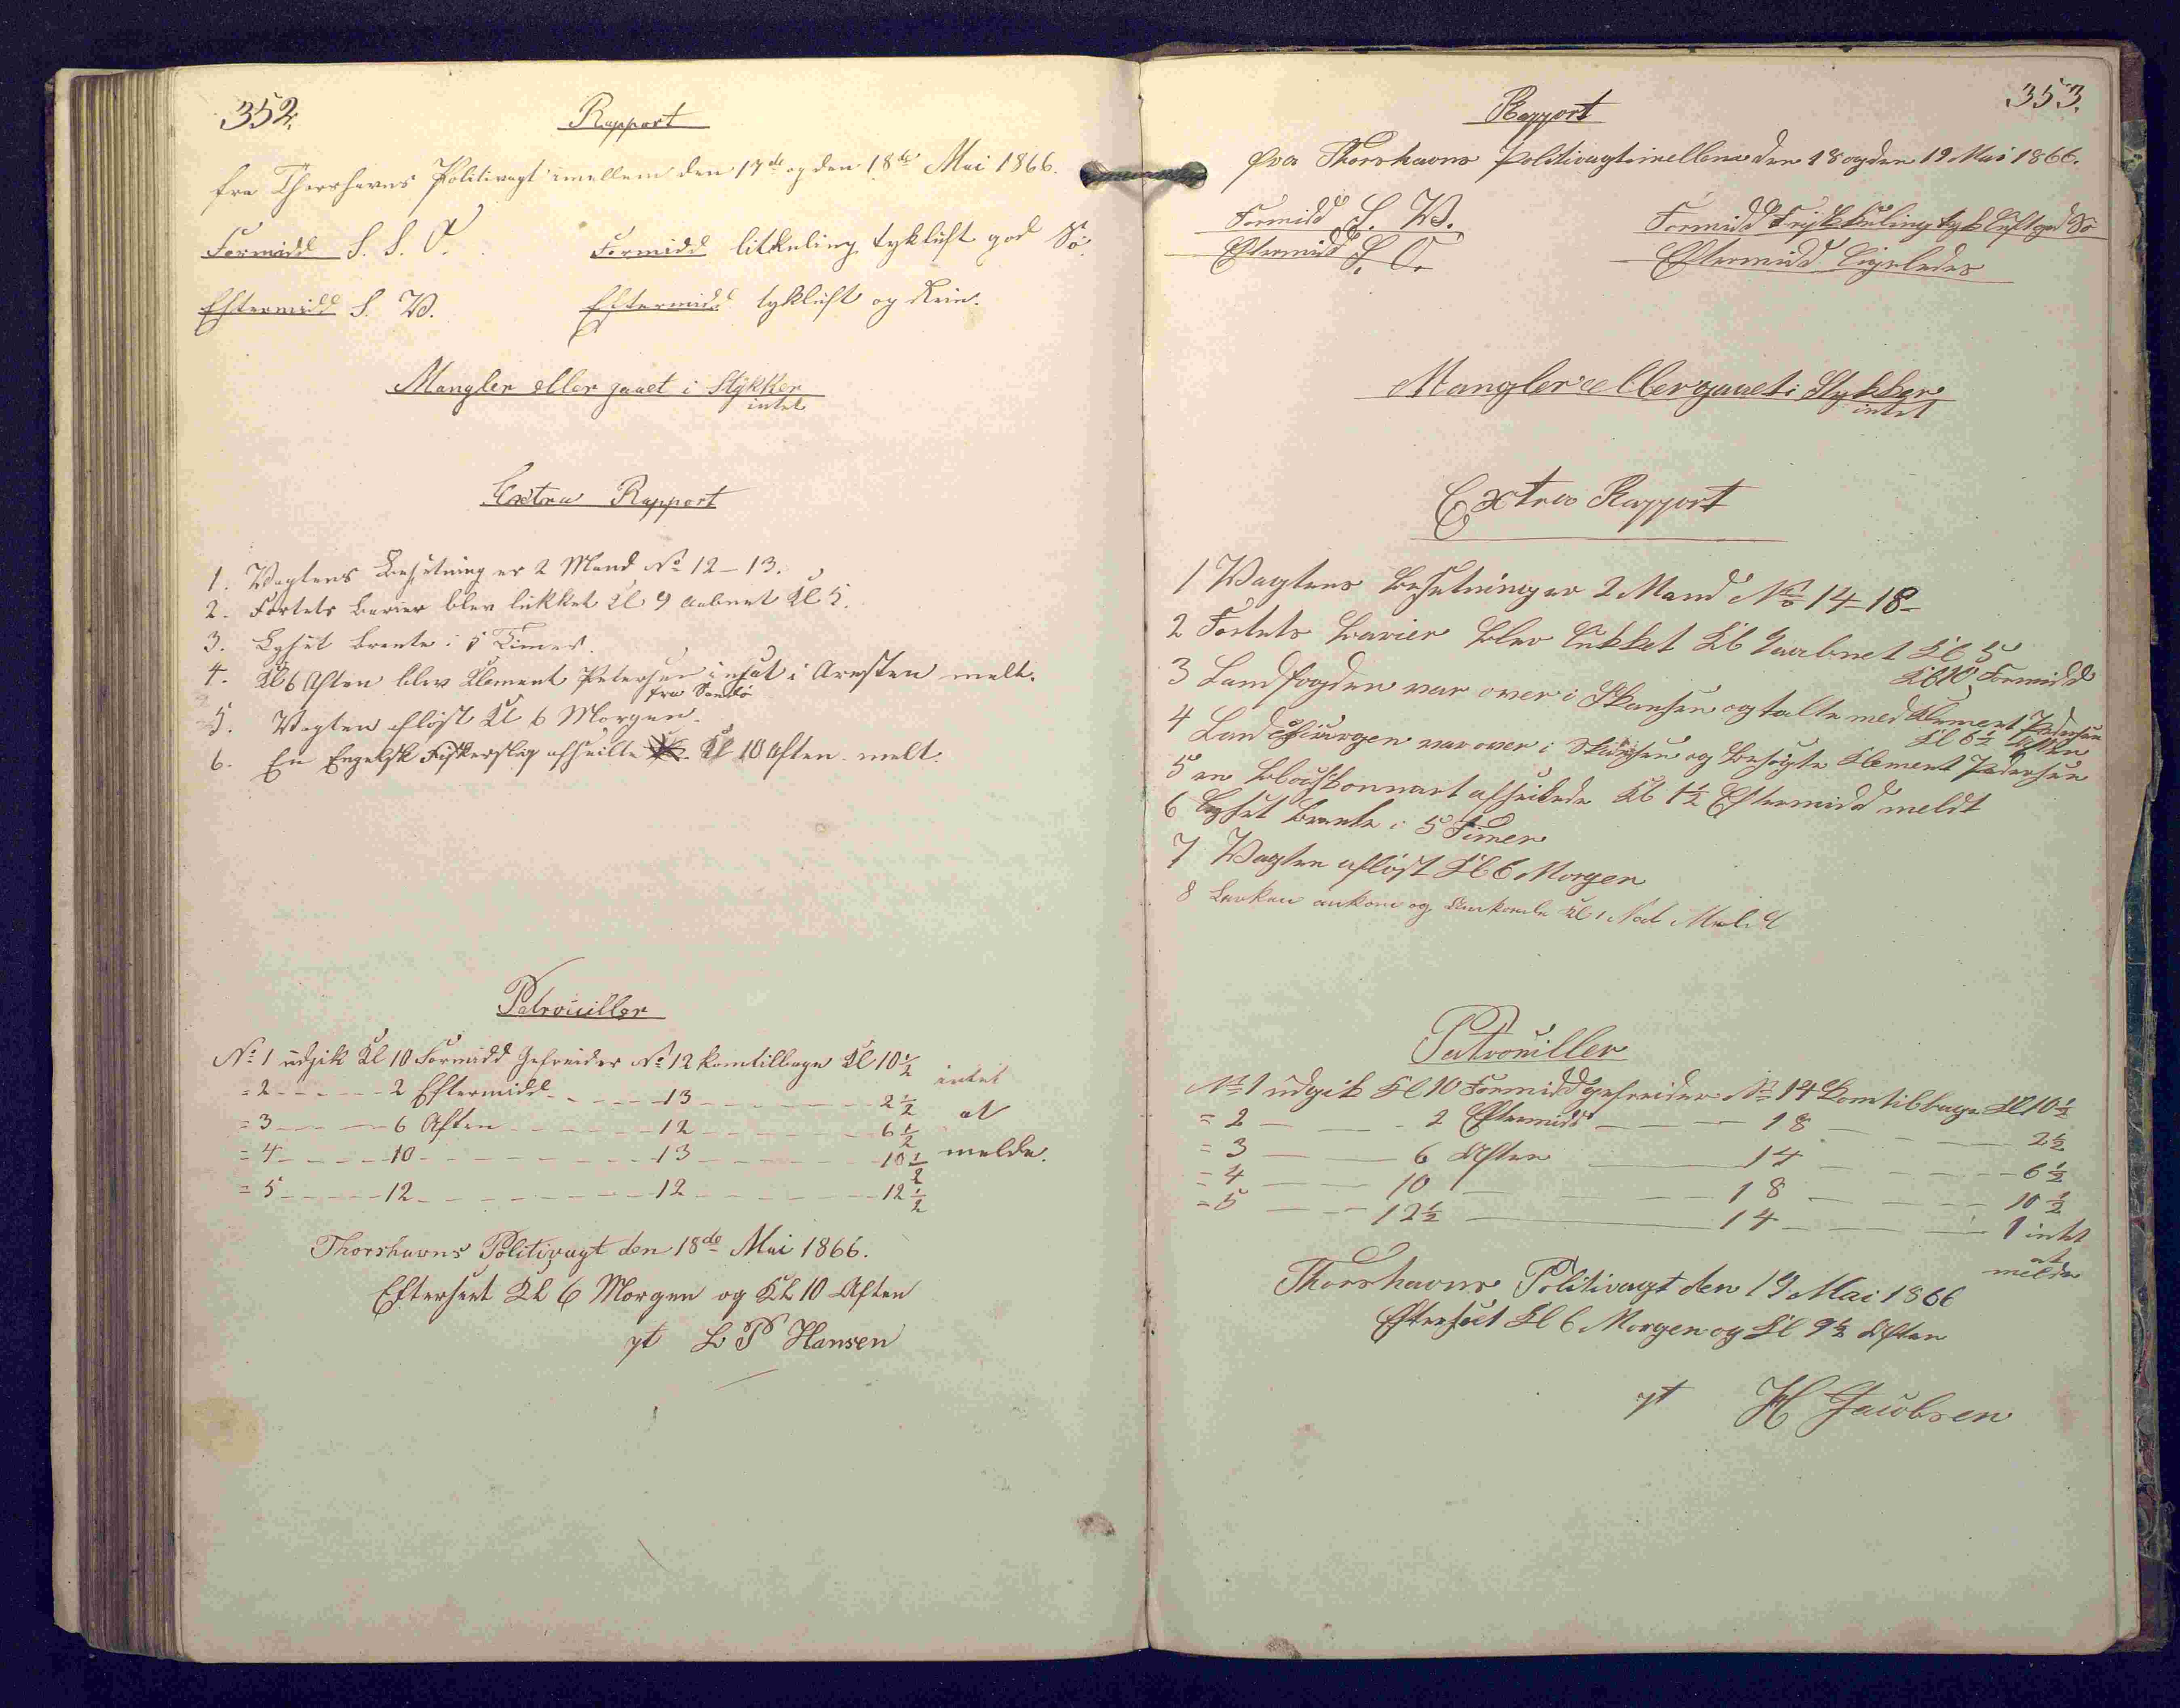 352.
Rapport
fra Thorshavns Politivagt imellem den 17de og den 18de Mai 1866.
Formidd S. S. O. Formidd litkuling tykluft god Sö.
Eftermidd S. V. Eftermidd tykluft og Rein.
Mangler eller gaaet i Stykker
intet
Extra Rapport
1. Vagtens Besetning er 2 Mand No 12-13.
2. Fortets Barier blev lukket Kl 9 aabnet Kl 5.
3. Lyset brente i 5 Timer.
4. Kl 6 Aften blev Klement Petersen insat i Aresten melt.
fra Sandö
5. Vagten aflöst Kl 6 Morgen.
6. En Engelsk Fiskerslup afseilte Kl 10 Aften. melt.
Patrouiller
No 1 udgik Kl 10 Formidd Gefreider No 12 kom tilbage Kl 10 1/2 intet
= 2 - - - - - 2 Eftermidd - - - - 13 - - - - - - - 2 1/2 at
= 3 - - - - - 6 Aften - - - - - - 12 - - - - - - - 6 1/2
= 4 - - - - - 10 - - - - - - - - 13 - - - - - - - 10 1/2 melde.
= 5 - - - - - 12 - - - - - - - - 12 - - - - - - - 12 1/2
Thorshavns Politivagt den 18de Mai 1866.
Efterseet Kl 6 Morgen og Kl 10 Aften
L P Hansen
353.
Rapport
fra Thorshavns Politivagt imellem den 18 og den 19 Mai 1866.
Formidd S. V. Formidd Frisk Kuling tyk Luft god Sö
Eftermidd S. O. Eftermidd ligeledes
Mangler eller gaaet i Stykker
intet
Extra Rapport
1 Vagtens Besetning er 2 Mand No 14-18-
2 Fortets Barier blev lukket Kl 9 aabnet Kl 5
Kl 10 Formidd
3 Landfogden var over i Skansen og talte med Klement Pedersen
Kl 6 1/2 Aften
4 Landchirurgen var over i Skansen og besögte Klement Pedersen
5 en afseilede Kl 1 1/2 Eftermidd meldt
6 Lyset brente i 5 Timer
7 Vagten aflöst Kl 6 Morgen
8 ankom og Kl 1 Nat Meldt
Patrouiller
No 1 udgik Kl 10 Formidd gefreider No 14 kom tilbage Kl 10 1/2
= 2 - - - 2 Eftermidd - - - 18 - - - - 2 1/2
= 3 - - - 6 Aften - - - 14 - - - - 6 1/2
= 4 - - - 10 - - - - 18 - - - - 10 1/2
= 5 - - - 12 1/2 - - - 14 - - - - 1 intet
at
melde
Thorshavns Politivagt den 19 Mai 1866
Efterseet Kl 6 Morgen og Kl 9 1/2 Aften
H Jacobsen